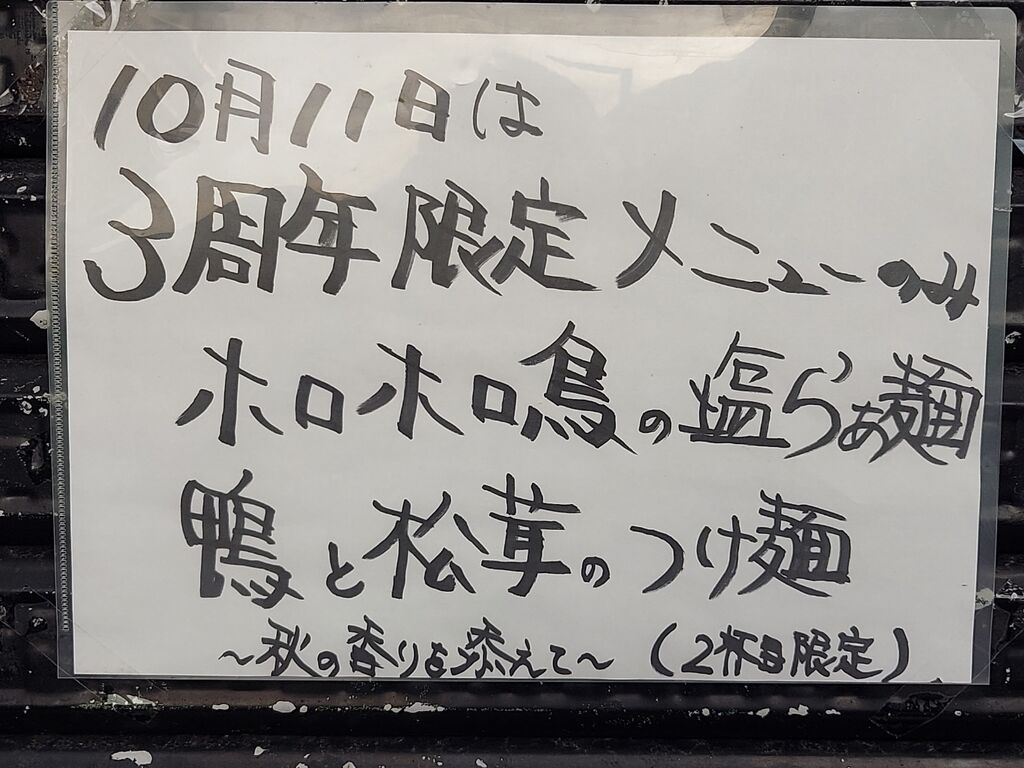 10月11日は
3周年限定メニューのみ
ホロホロ鳥の塩らぁ麺
鴨と松茸のつけ麺
～秋の香りを添えて～ (2杯目限定)